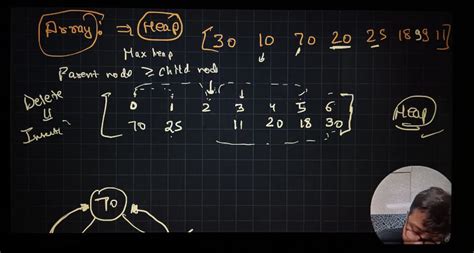 Array: ⇒ Heap [30 10 70 20 25 18 99 11]
Max heap
Parent node ≥ child node
Delete
Insert
0 1 2 3 4 5 6
70 25 11 20 18 30
Heap
70